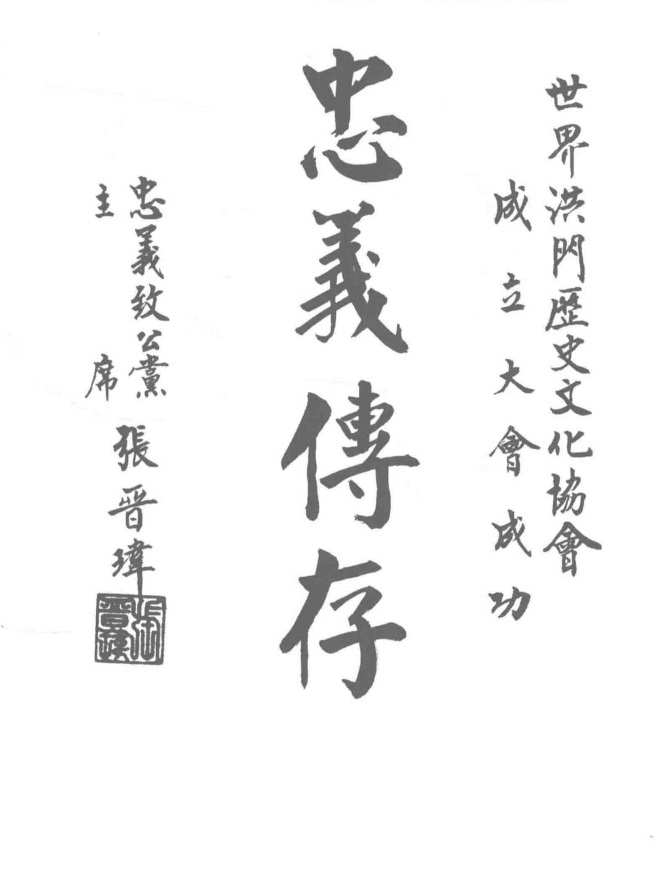 世界洪門歷史文化協會
成立大會成功
忠義傳存
忠義致公黨
主席
張晉瑋
張晉瑋